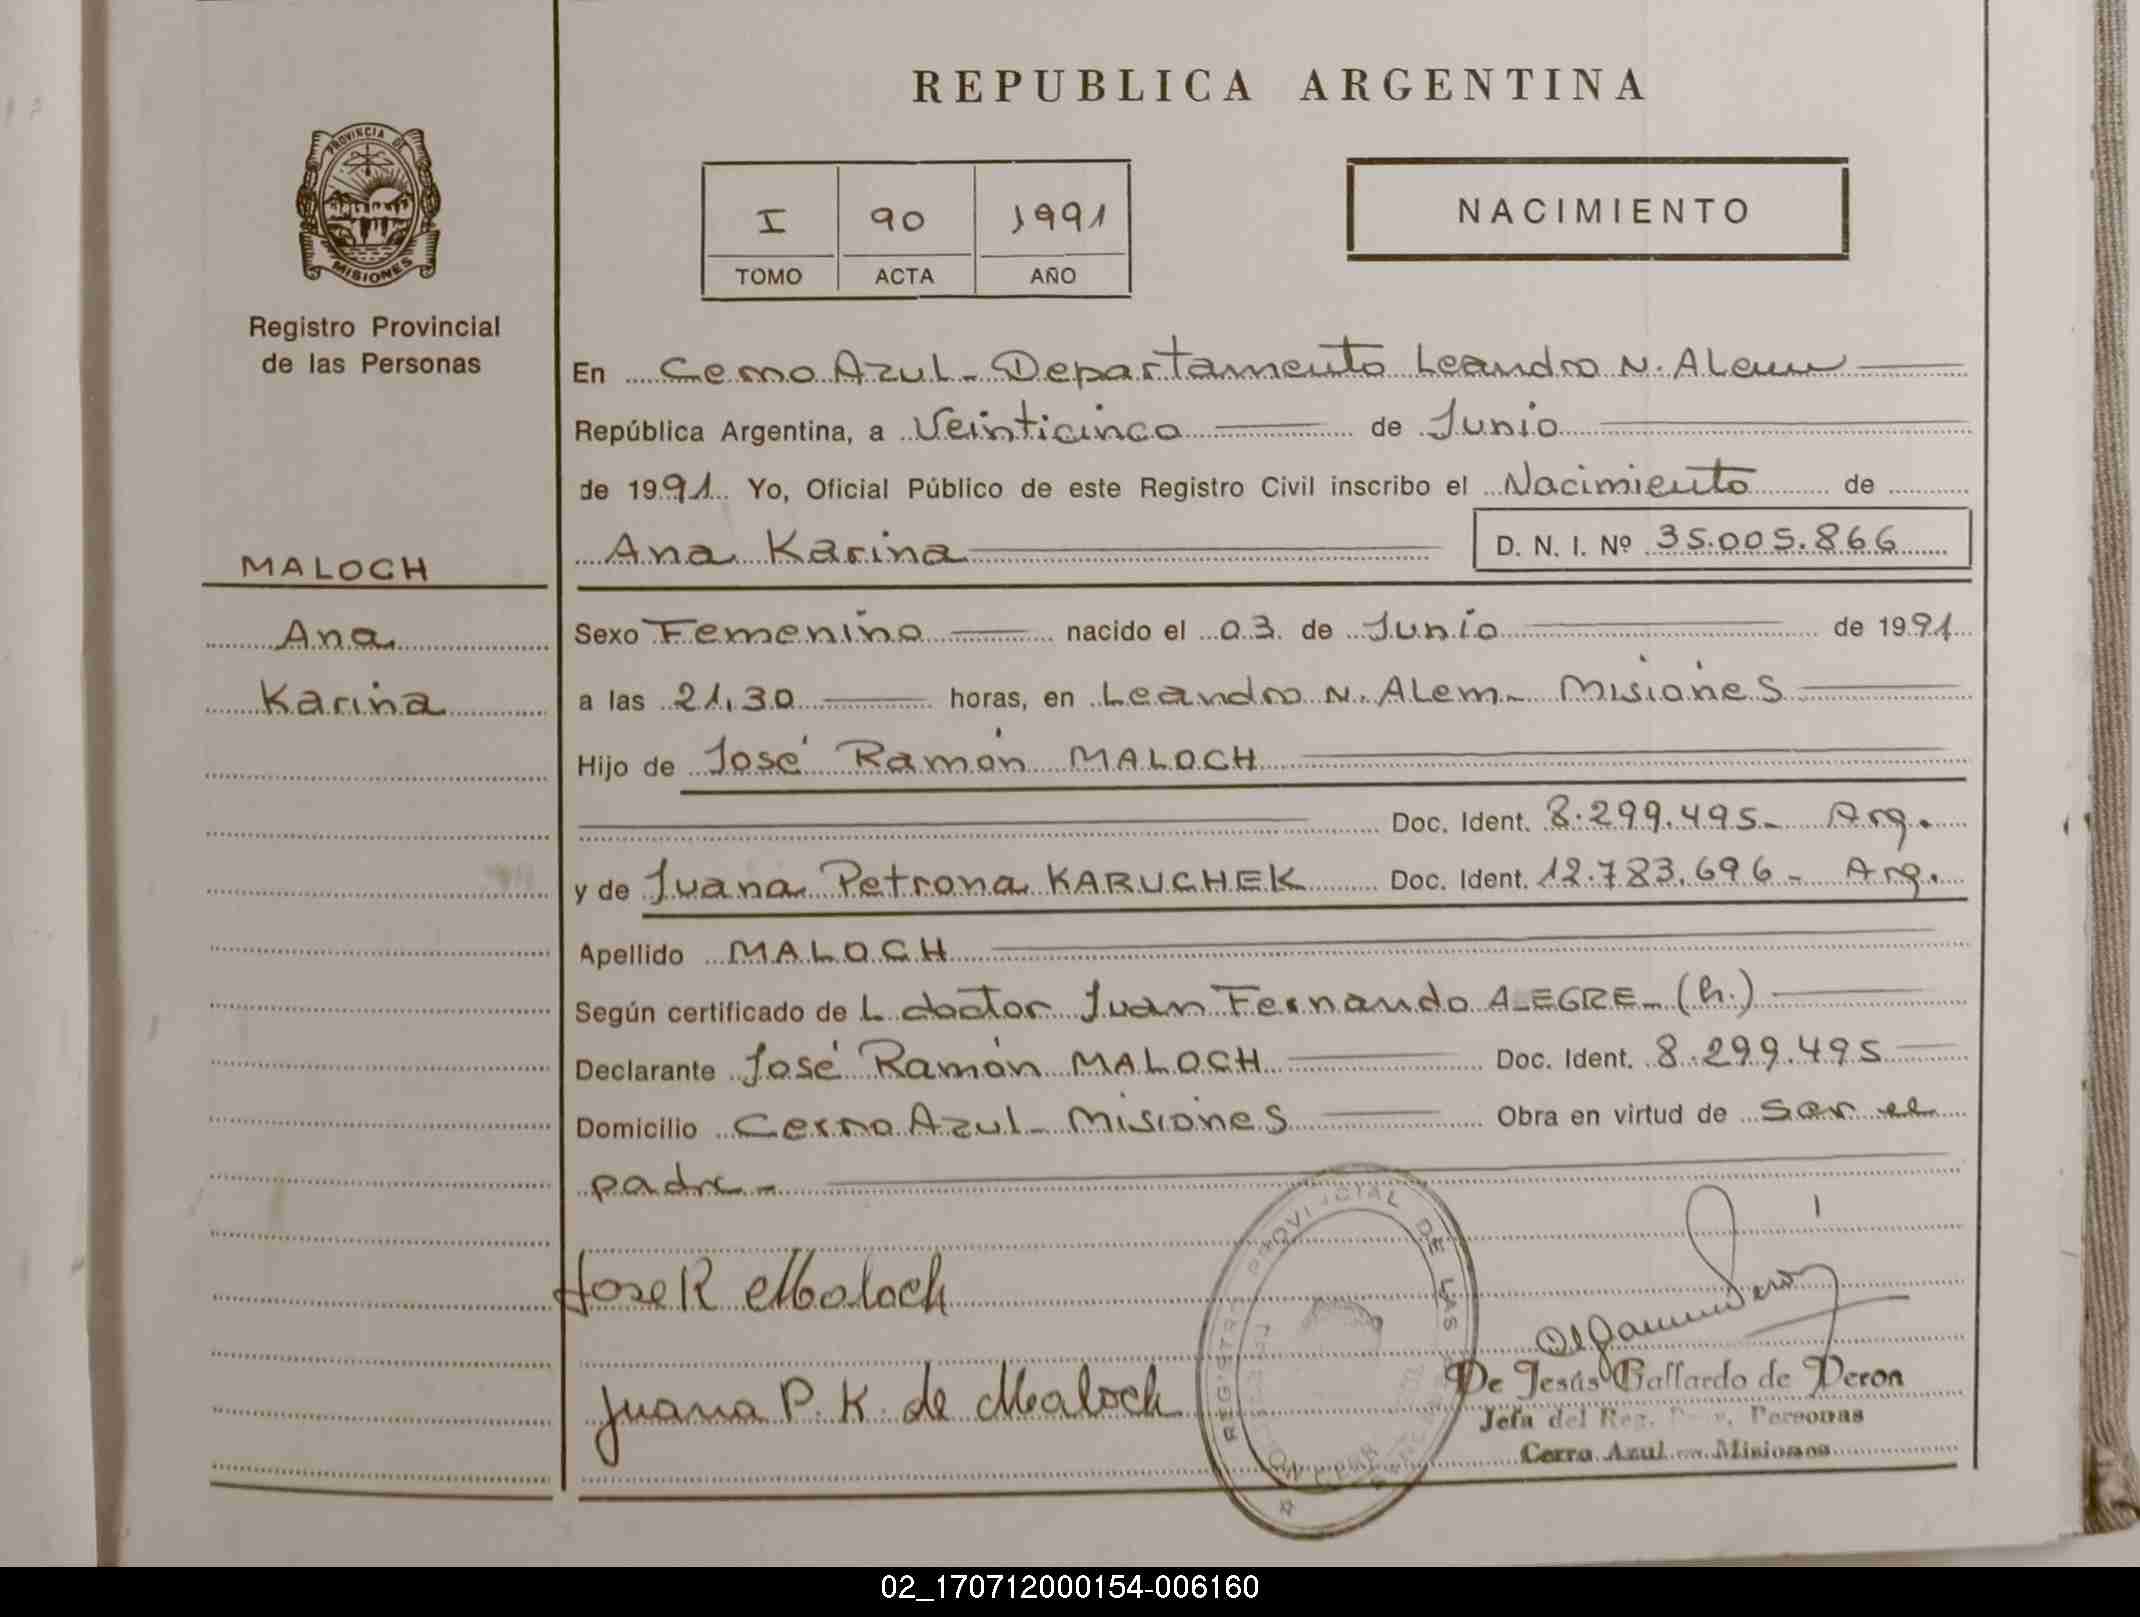 REPUBLICA ARGENTINA
PROVINCIA DE
MISIONES
Registro Provincial
de las Personas
I 90 1991
TOMO ACTA AÑO
NACIMIENTO
En Cerro Azul - Departamento Leandro N. Alem
República Argentina, a Veinticinco de Junio
de 1991 Yo, Oficial Público de este Registro Civil inscribo el Nacimiento de
Ana Karina D. N. I. Nº 35.005.866
MALOCH
Ana
Karina
Sexo Femenino nacido el 03 de Junio de 1991
a las 21,30 horas, en Leandro N. Alem - Misiones
Hijo de José Ramón MALOCH
Doc. Ident. 8.299.495- Arg.
y de Juana Petrona KARUCHEK Doc. Ident. 12.783.696- Arg.
Apellido MALOCH
Según certificado de L doctor Juan Fernando ALEGRE - (h.)
Declarante José Ramón MALOCH Doc. Ident. 8.299.495
Domicilio Cerro Azul - Misiones Obra en virtud de ser el
padre -
Jose R Maloch
Juana P. K. de Maloch
REGISTRO PROVINCIAL DE LAS
De Jesús Gallardo de Deron
Jefa del Reg. Personas
Cerro Azul Misiones
02_170712000154-006160